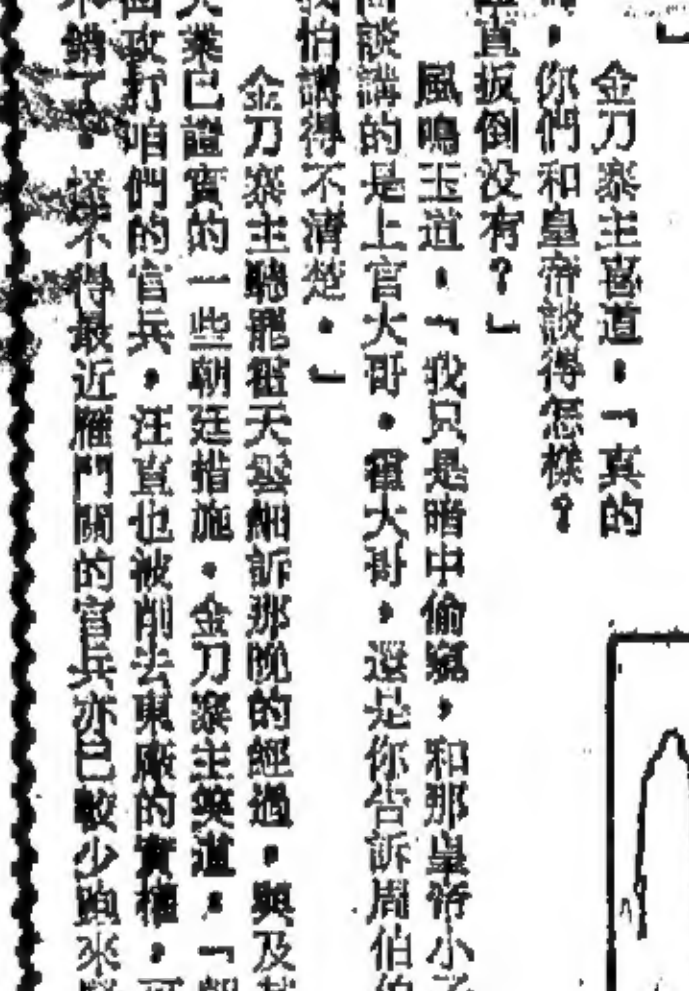 金刀寨主喜道，「真的
，你們和皇帝談得怎樣？
直扳倒没有？」
風鳴玉道，「我只是暗中偷窺，和那皇帝小子
談講的是上官大哥。霍大哥，還是你告訴周伯伯
怕講得不清楚。」
金刀寨主聽罷霍天雲細訴那晚的經過，與及其
業已證實的一些朝廷措施。金刀寨主笑道，「
攻打咱們的官兵，汪直也被削去東廠的實權，可
不錯了。怪不得最近雁門關的官兵亦已較少跑來